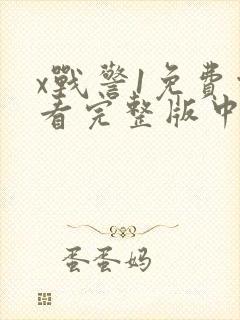 x戰警1免費
看完整版中
蛋蛋妈